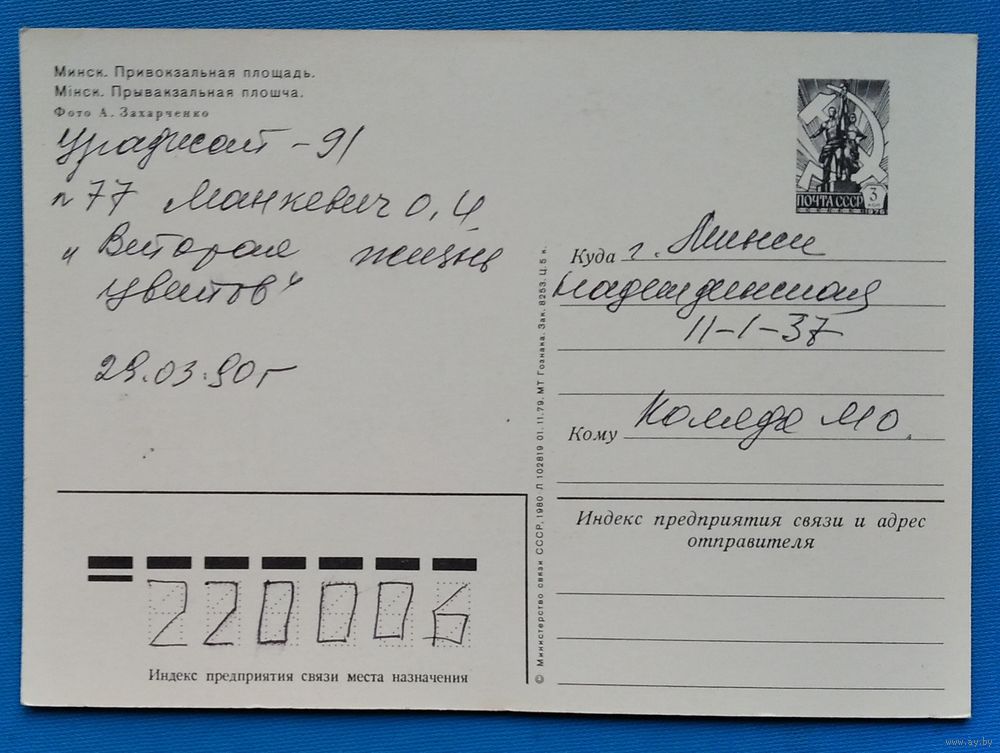 Минск. Привокзальная площадь.
Мiнск. Прывакзальная плошча.
Фото А. Захарченко
- 91
п 77 Манкевич О, Ч
"Вторая жизнь
цветов"
29.03.90г
ПОЧТА СССР
3
КОП
1976
Куда г. Минск
Надеждинская
11-1-37
Кому Коляда М О.
Индекс предприятия связи и адрес
отправителя
© Министерство связи СССР, 1980 Л 102819 01.11.79. МТ Гознака. Зак. 8253. Ц. 5 к.
220006
Индекс предприятия связи места назначения
www.ay.by